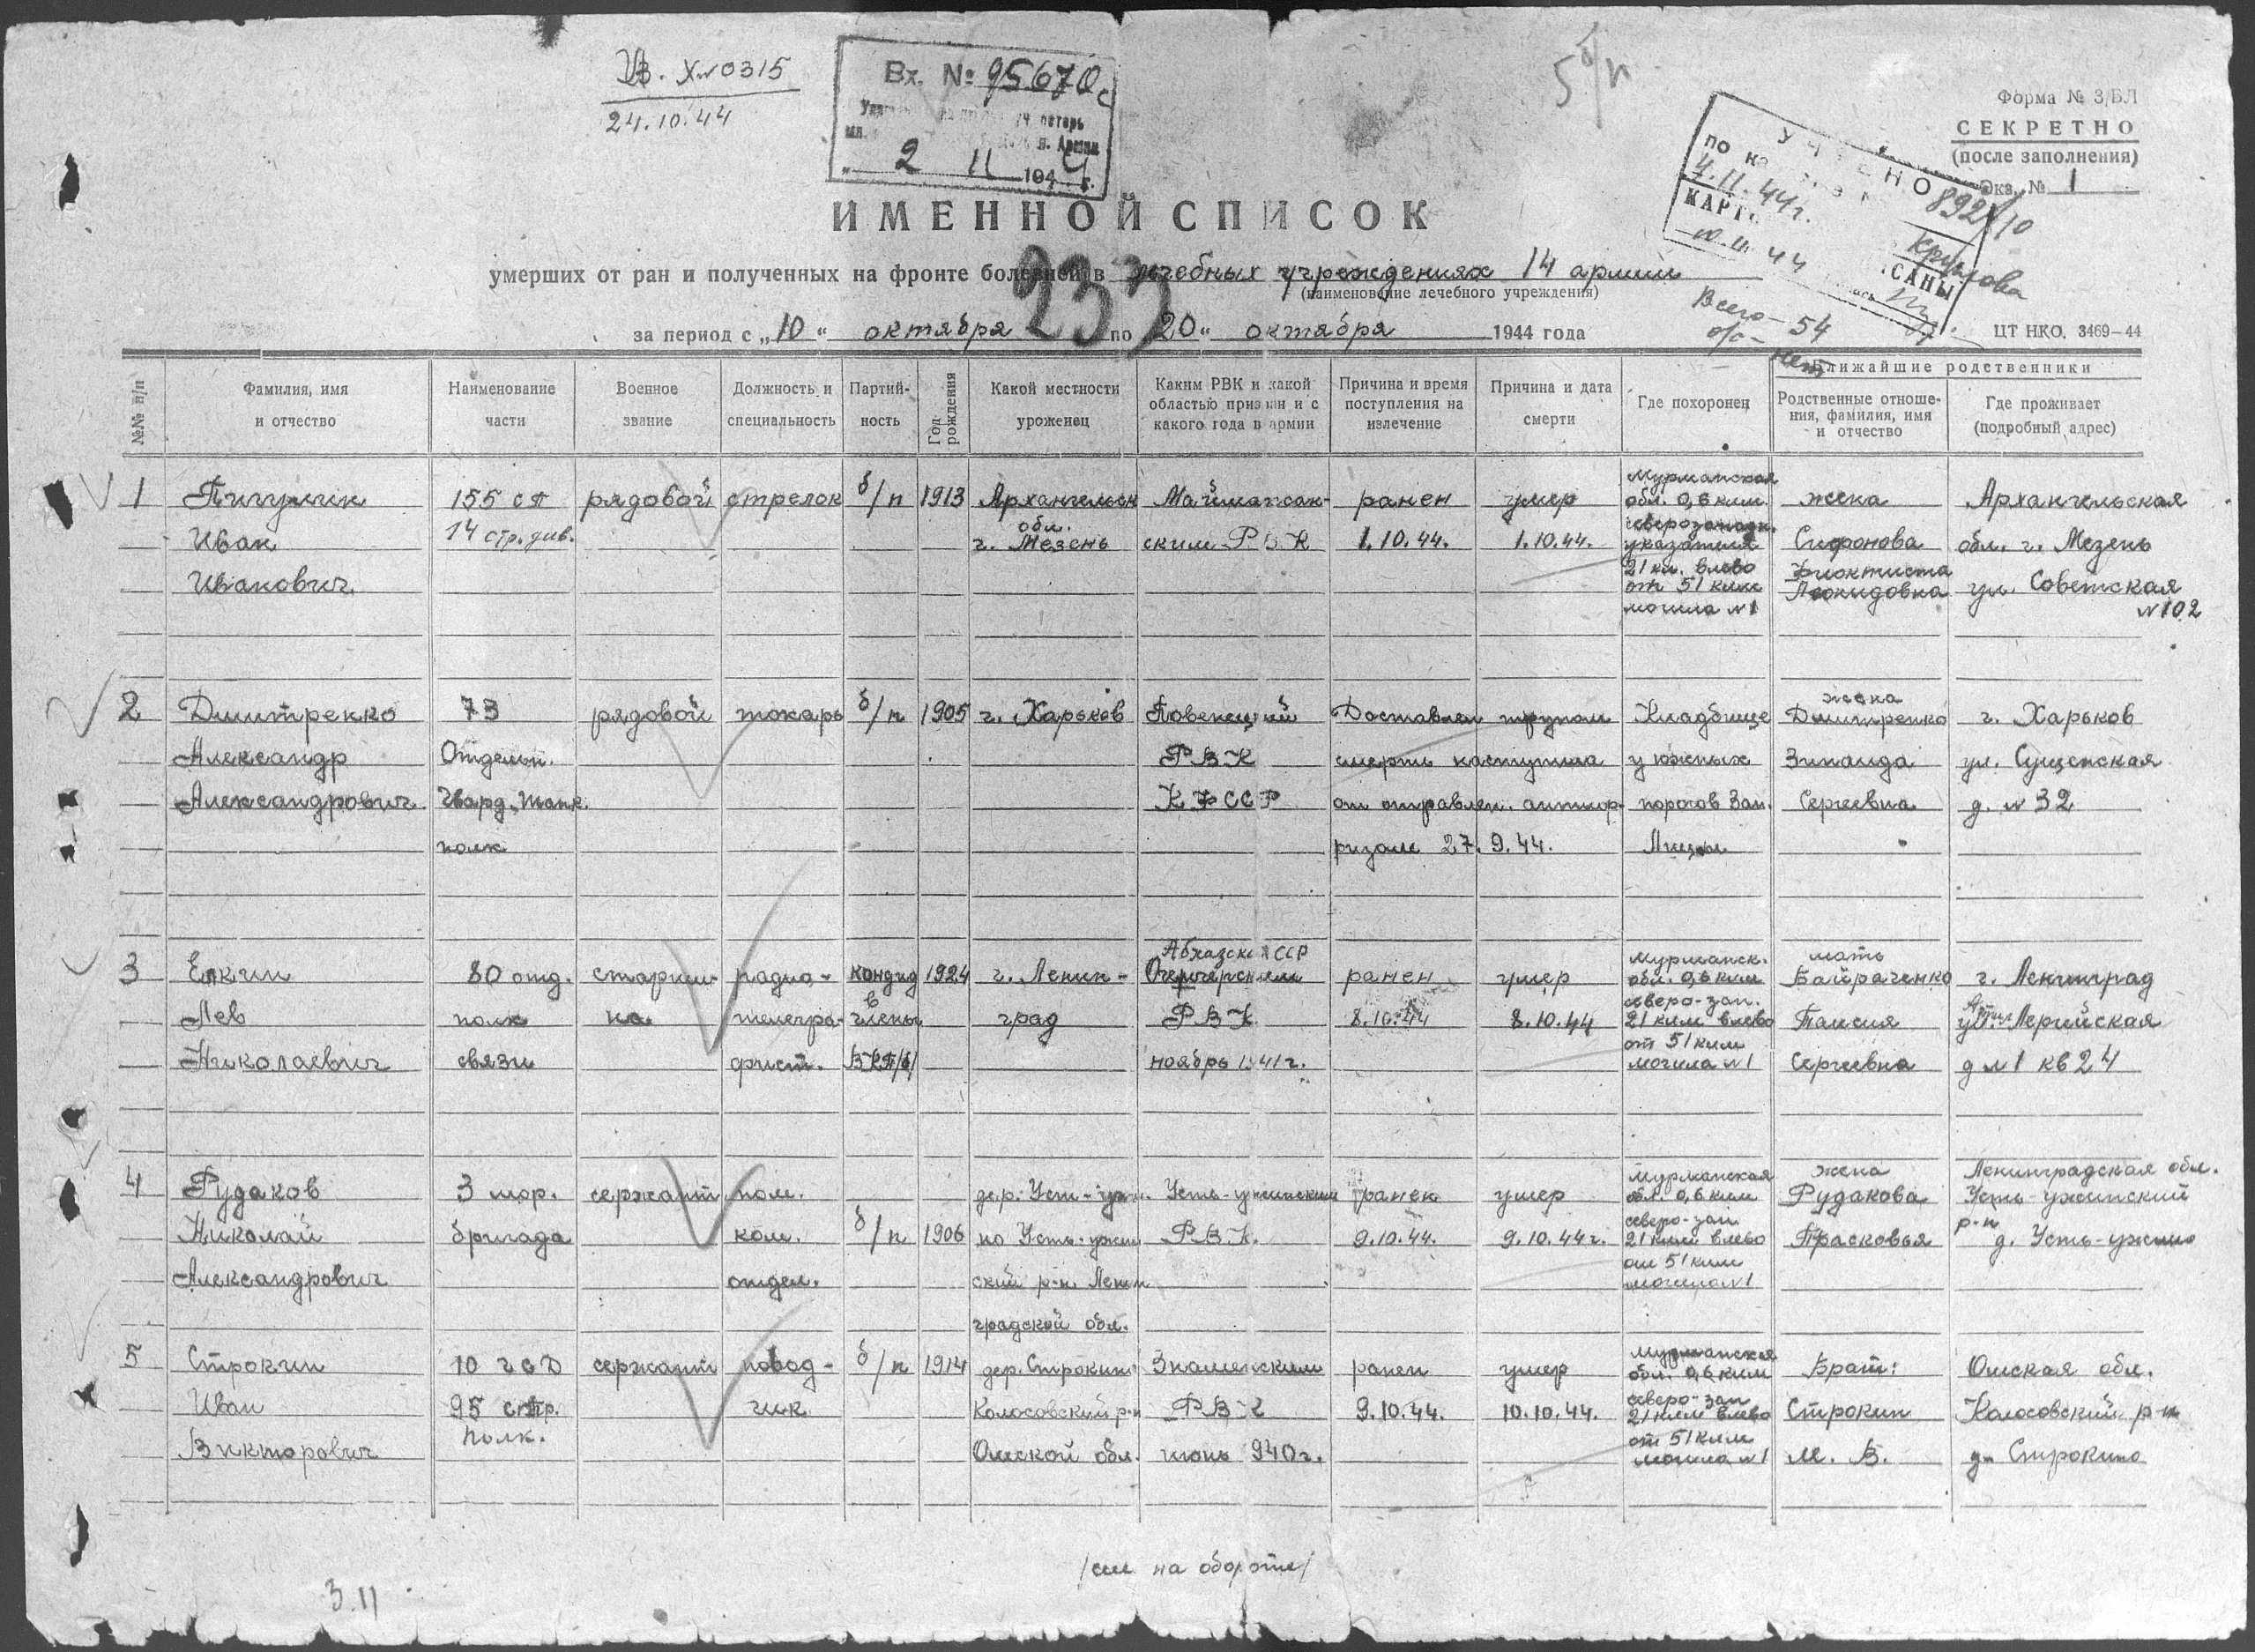 Вх. №0315
24.10.44
Вх. № 95670с
потерь
2 11 1944 г.
5 б/п
Форма № 3/БЛ
СЕКРЕТНО
(после заполнения)
Экз. № 1
УЧТЕНО 892/10
4.11.44г.
Крылова
Всего - 54
о/с - нет
ИМЕННОЙ СПИСОК
умерших от ран и полученных на фронте болезней в лечебных учреждениях 14 армии
(наименование лечебного учреждения)
237
за период с „10“ октября по 20“ октября 1944 года
ЦТ НКО. 3469—44
№№ п/п
Фамилия, имя и отчество
Наименование части
Военное звание
Должность и специальность
Партийность
Год рождения
Какой местности уроженец
Каким РВК и какой областью призван и с какого года в армии
Причина и время поступления на излечение
Причина и дата смерти
Где похоронен
Ближайшие родственники
Родственные отношения, фамилия, имя и отчество
Где проживает (подробный адрес)
1 Пичугин 155 сп рядовой стрелок б/п 1913 Архангельск Маймаксан- ранен умер Мурманская обл. 0,6 клм. жена Архангельская
Иван 14 стр. див. обл. г. Мезень ским РВК 1.10.44. 1.10.44. северозападн. указателя Сафонова обл. г. Мезень
Иванович. 21 кл. влево от 51 клм могила №1 Феоктиста Леонидовна ул. Советская №102
2 Дмитренко 73 рядовой токарь б/п 1905 г. Харьков Повенецкий Доставлен трупом Кладбище жена Дмитренко г. Харьков
Александр Отдельн. РВК смерть наступила у южных Зинаида ул. Сущенская
Александрович Гвард. танк. КФССР от отравлен. антифризом порогов Зап. Сергеевна д. №32
полк 27.9.44. Лицы
3 Елкин 80 отд. старши- радио- кандид 1924 г. Ленин- Абхазская ССР Очемчерским ранен умер Мурманск. обл. 0,6 клм мать Байраченко г. Ленинград
Лев полк на телегра- в члены град РВК 8.10.44 8.10.44 северо-зап. 21 клм влево Таисия ул. Лерийская
Николаевич связи фист. ВКП/б/ ноябрь 1941г. от 51 клм могила №1 Сергеевна д №1 кв 24
4 Рудаков 3 мор. сержант пом. дер. Усть-уж. Усть-ужинским ранен умер Мурманская обл. 0,6 клм жена Рудакова Ленинградская обл. Усть-ужинский
Николай бригада ком. б/п 1906 но Усть-ужин РВК. 9.10.44. 9.10.44г. северо-зап 21 клм влево Прасковья р-н д. Усть-ужино
Александрович отдел. ский р-н Ленин от 51 клм могила №1
градской обл.
5 Строкин 10 гсд сержант повод- б/п 1914 дер. Строкино Знаменским ранен умер Мурманская обл. 0,6 клм Брат: Омская обл.
Иван 95 стр. чик Колосовский р-н РВК 9.10.44. 10.10.44. северо-зап 21 клм влево Строкин Колосовский р-н
Викторович полк. Омской обл. июнь 940г. от 51 клм могила №1 М. В. д. Строкино
/см на обороте/
3.11